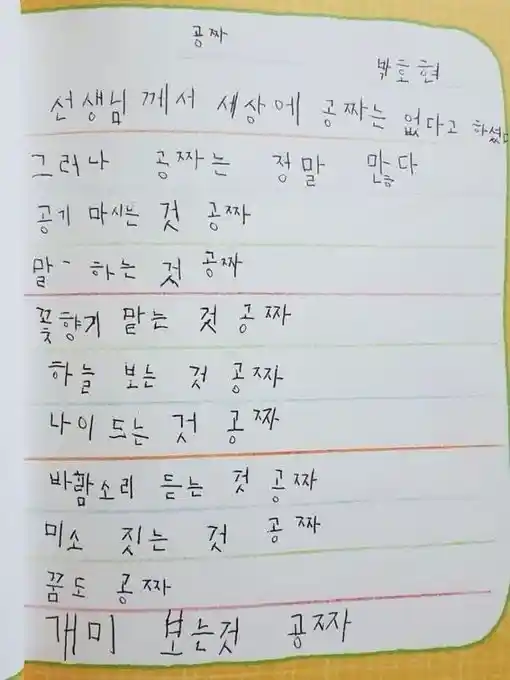 공짜
박호현
선생님 께서 세상에 공짜는 없다고 하셨다
그러나 공짜는 정말 많다
공기 마시는 것 공짜
말 하는 것 공짜
꽃향기 맡는 것 공짜
하늘 보는 것 공짜
나이 드는 것 공짜
바람소리 듣는 것 공짜
미소 짓는 것 공짜
꿈도 공짜
개미 보는것 공짜